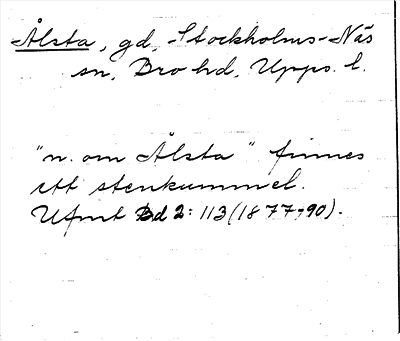 Ålsta, gd, Stockholms-Näs
sn, Bro hd, Upps. l.
"n. om Ålsta" finnes
ett stenkummel.
Ufmt Bd 2: 113 (1877-90).